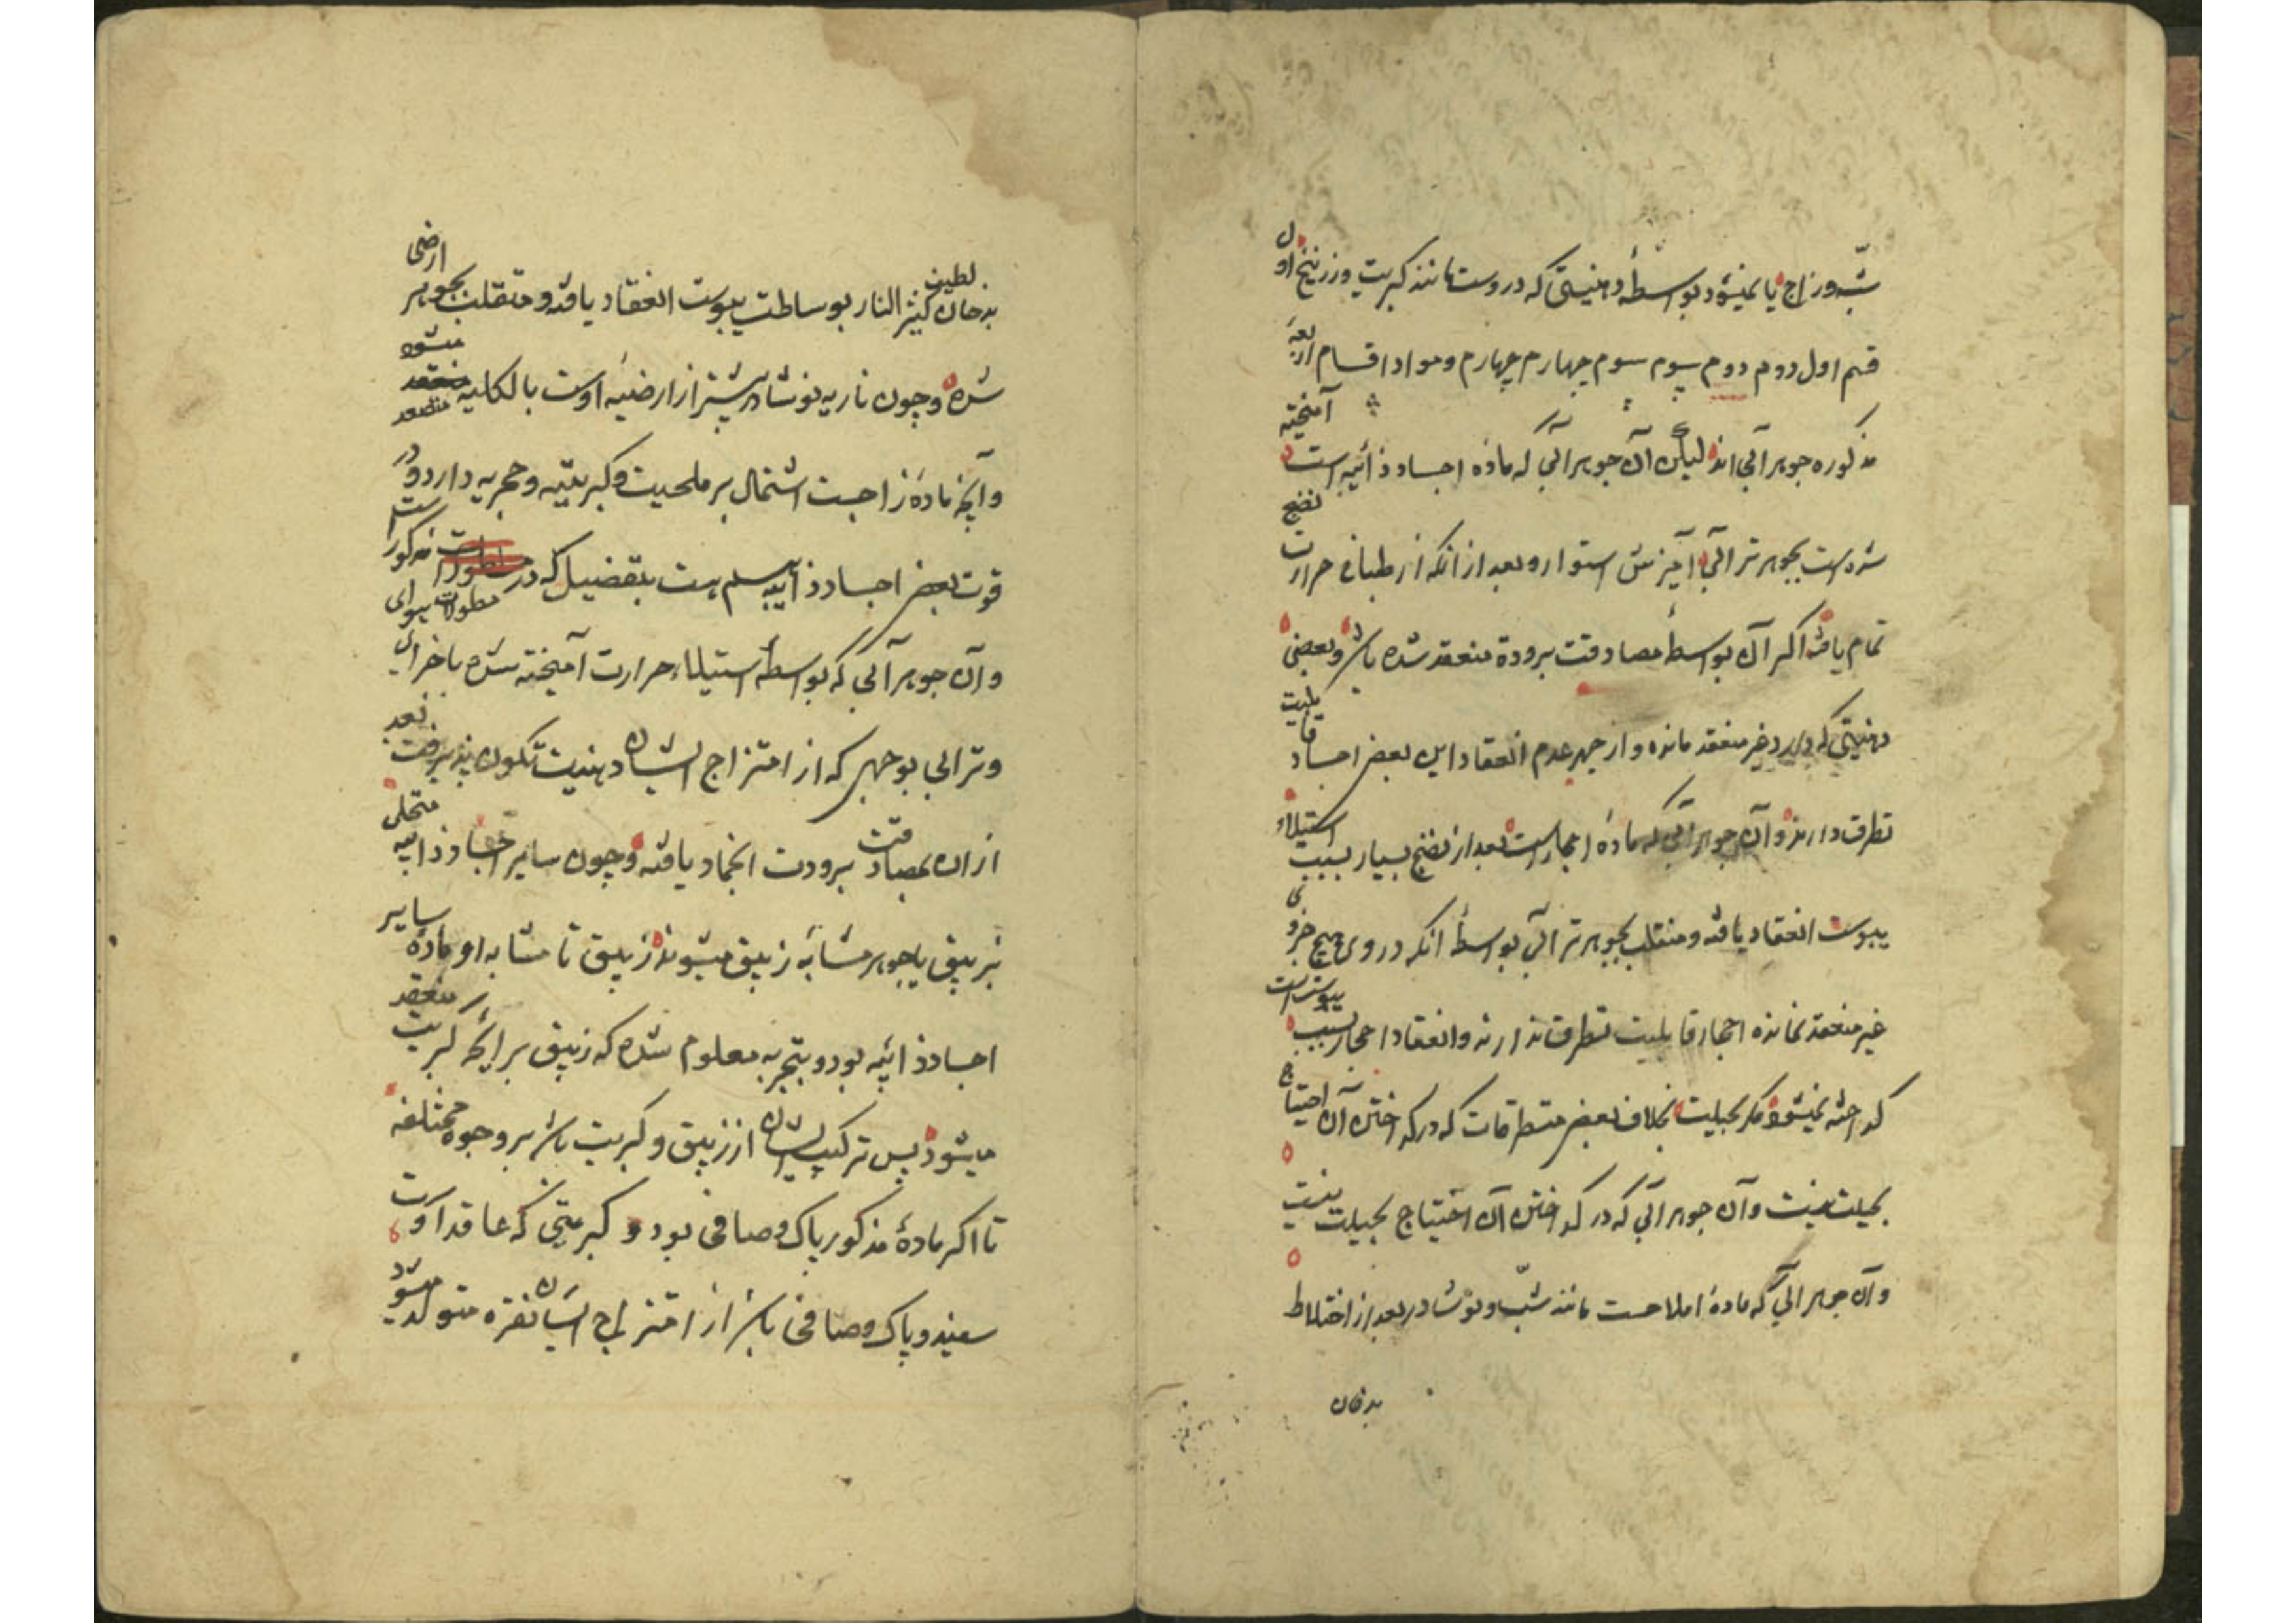 شبّ و زاج یا نمیشود بواسطهٔ دهنیتی که دروست مانند کبریت و زرنیخ اول
قسم اول دوم دوم سیوم سوم چهارم چهارم و مواد اقسام اربعه
مذکوره جوهر آبی اند لیکن آن جوهر آبی که مادهٔ اجساد ذائبه است آمیخته
شده است بجوهر ترابی آمیزش استوار و بعد از انکه از طباخی حرارت نضج
تمام یافته اگر آن بواسطهٔ مصادفت برودة منعقد شده باشد و بعضی
دهنیتی که دارد غیر منعقد مانده و از جهة عدم انعقاد این بعض اجساد قابلیت
تطرق دارند و آن جوهر آبی که مادهٔ احجار است بعد از نضج بسیار بسبب استیلاء
یبوست انعقاد یافته و منقلب بجوهر ترابی بواسطهٔ انکه در وی هیچ جزوی
غیر منعقد نمانده احجار قابلیت تطرق ندارند و انعقاد احجار بسبب یبوستست
گداخته نمیشود مگر بحیلت بخلاف بعض متطرقات که در گداختن آن احتیاج
بحیلت نیست و آن جوهر آبی که در گداختن آن احتیاج بحیلت نیست
و آن جوهر آبی که مادهٔ املاحست مانند شبّ و نوشادر بعد از اختلاط
بدخان
بدخان لطیف کثیر النار بوساطت یبوست انعقاد یافته و منقلب بجوهر ارضی
شده و چون ناریه نوشادر بیشتر از ارضیهٔ اوست بالکلیه متصعد میشود
و آنچه مادهٔ زاجست اشتمال بر ملحیت و کبریتیه و حجریه دارد و در
قوت بعض اجساد ذائبه هست بتفضیل که در مطولات مذکور است
و آن جوهر آبی که بواسطهٔ استیلاء حرارت آمیخته شده باجزای هوای
و ترابی بوجهی که از امتزاج ایشان دهنیت تکون پذیرفت بعد
از ان بمصادفت برودت انجماد یافته و چون سایر اجساد ذائبه متحلی
بزیبق یا جوهر مشابهٔ زیبق میشوند زیبق تا مشابه او مادهٔ سایر
اجساد ذائبه بود و بتجربه معلوم شده که زیبق برایحهٔ کبریت منعقد
میشود پس ترکیب ایشان از زیبق و کبریت باشد بر وجوه مختلفه
تا اگر مادهٔ مذکور پاک و صافی بود و کبریتی که عاقد اوست
سفید و پاک و صافی باشد از امتزاج ایشان نقره متولد میشود